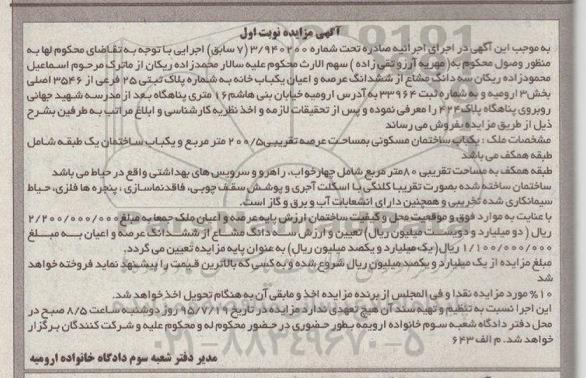 آگهی مزایده نوبت اول
به موجب این آگهی در اجرای اجرائیه صادره تحت شماره ۳/۹۴۰۲۰۰ (۷ سابق) اجرایی با توجه به تقاضای محکوم لها به
منظور وصول محکوم به( مهریه آرزو تقی زاده ) سهم الارث محکوم علیه سالار محمدزاده ریکان از ماترک مرحوم اسماعیل
محمودزاده ریکان سه دانگ مشاع از ششدانگ عرصه و اعیان یکباب خانه به شماره پلاک ثبتی ۲۵ فرعی از ۳۵۴۶ اصلی
بخش۳ ارومیه و به شماره ثبت ۳۳۹۶۴ به آدرس ارومیه خیابان بنی هاشم ۱۶ متری پناهگاه بعد از مدرسه شهید جهانی
روبروی پناهگاه پلاک۴۲۴ را معرفی نموده و پس از تحقیقات لازمه و اخذ نظریه کارشناسی و ابلاغ مراتب به طرفین بشرح
ذیل از طریق مزایده بفروش می رساند
مشخصات ملک : یکباب ساختمان مسکونی بمساحت عرصه تقریبی۲۰۰/۵ متر مربع و یکباب ساختمان یک طبقه شامل
طبقه همکف می باشد
طبقه همکف به مساحت تقریبی ۸۰متر مربع شامل چهارخواب، راهرو و سرویس های بهداشتی واقع در حیاط می باشد
ساختمان ساخته شده بصورت تقریبا کلنگی با اسکلت آجری و پوشش سقف چوبی، فاقد نماسازی ، پنجره ها فلزی، حیاط
سیمانکاری شده تخریبی و همچنین دارای انشعابات آب و برق و گاز است.
با عنایت به موارد فوق و موقعیت محل و کیفیت ساختمان ارزش پایه عرصه و اعیان ملک جمعا به مبلغ ۲/۲۰۰/۰۰۰/۰۰۰
ریال ( دو میلیارد و دویست میلیون ریال) تعیین و ارزش سه دانگ مشاع از ششدانگ عرصه و اعیان به مبلغ
۱/۱۰۰/۰۰۰/۰۰۰ ریال( یک میلیارد و یکصد میلیون ریال) به عنوان پایه مزایده تعیین می گردد.
مبلغ مزایده از یک میلیارد و یکصد میلیون ریال شروع شده و به کسی که بالاترین قیمت را پیشنهاد نماید فروخته خواهد
شد
۱۰% مورد مزایده نقدا و فی المجلس از برنده مزایده اخذ و مابقی آن به هنگام تحویل اخذ خواهد شد.
این اجرا نسبت به تنظیم و تهیه سند آن هیچ تعهدی ندارد مزایده در تاریخ ۹۵/۷/۱۹ روز دوشنبه ساعت ۸/۵ صبح در
محل دفتر دادگاه شعبه سوم خانواده ارومیه بطور حضوری در حضور محکوم له و محکوم علیه و شرکت کنندگان برگزار
خواهد شد. م الف ۶۴۳
مدیر دفتر شعبه سوم دادگاه خانواده ارومیه
۰۲۱-۸۸۳۴۹۶۷۰-۵